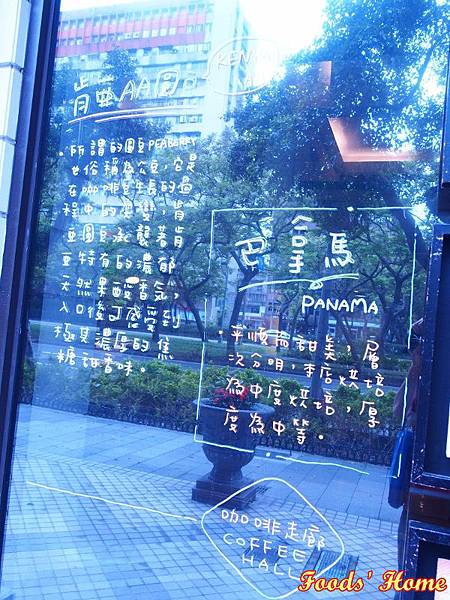 肯亞AA圓豆
KENYA
·所謂的圓豆PEABERRY
世俗稱為公豆,它是
在咖啡豆生長的過
程中的突變,肯
亞圓豆承襲著肯
亞特有的濃郁
天然果酸香氣,
入口後可感受到
極具濃厚的焦
糖甜香味。
巴拿馬
PANAMA
·平順而甜美,層
次分明,本店烘培
為中度烘培,厚
度為中等。
咖啡走廊
COFFEE
HALL
Foods' Home